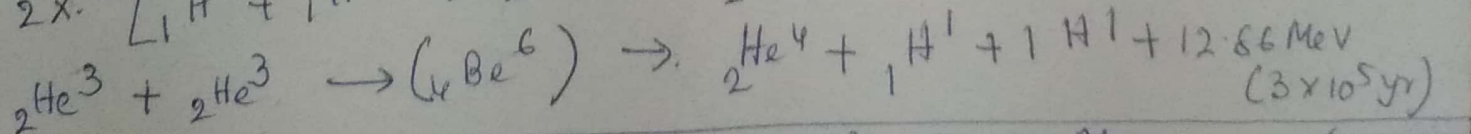 2x. [₁H + 1
₂He³ + ₂He³ → (₄Be⁶) → ₂He⁴ + ₁H¹ + 1 H¹ + 12.66 MeV
(3 x 10⁵ yr)